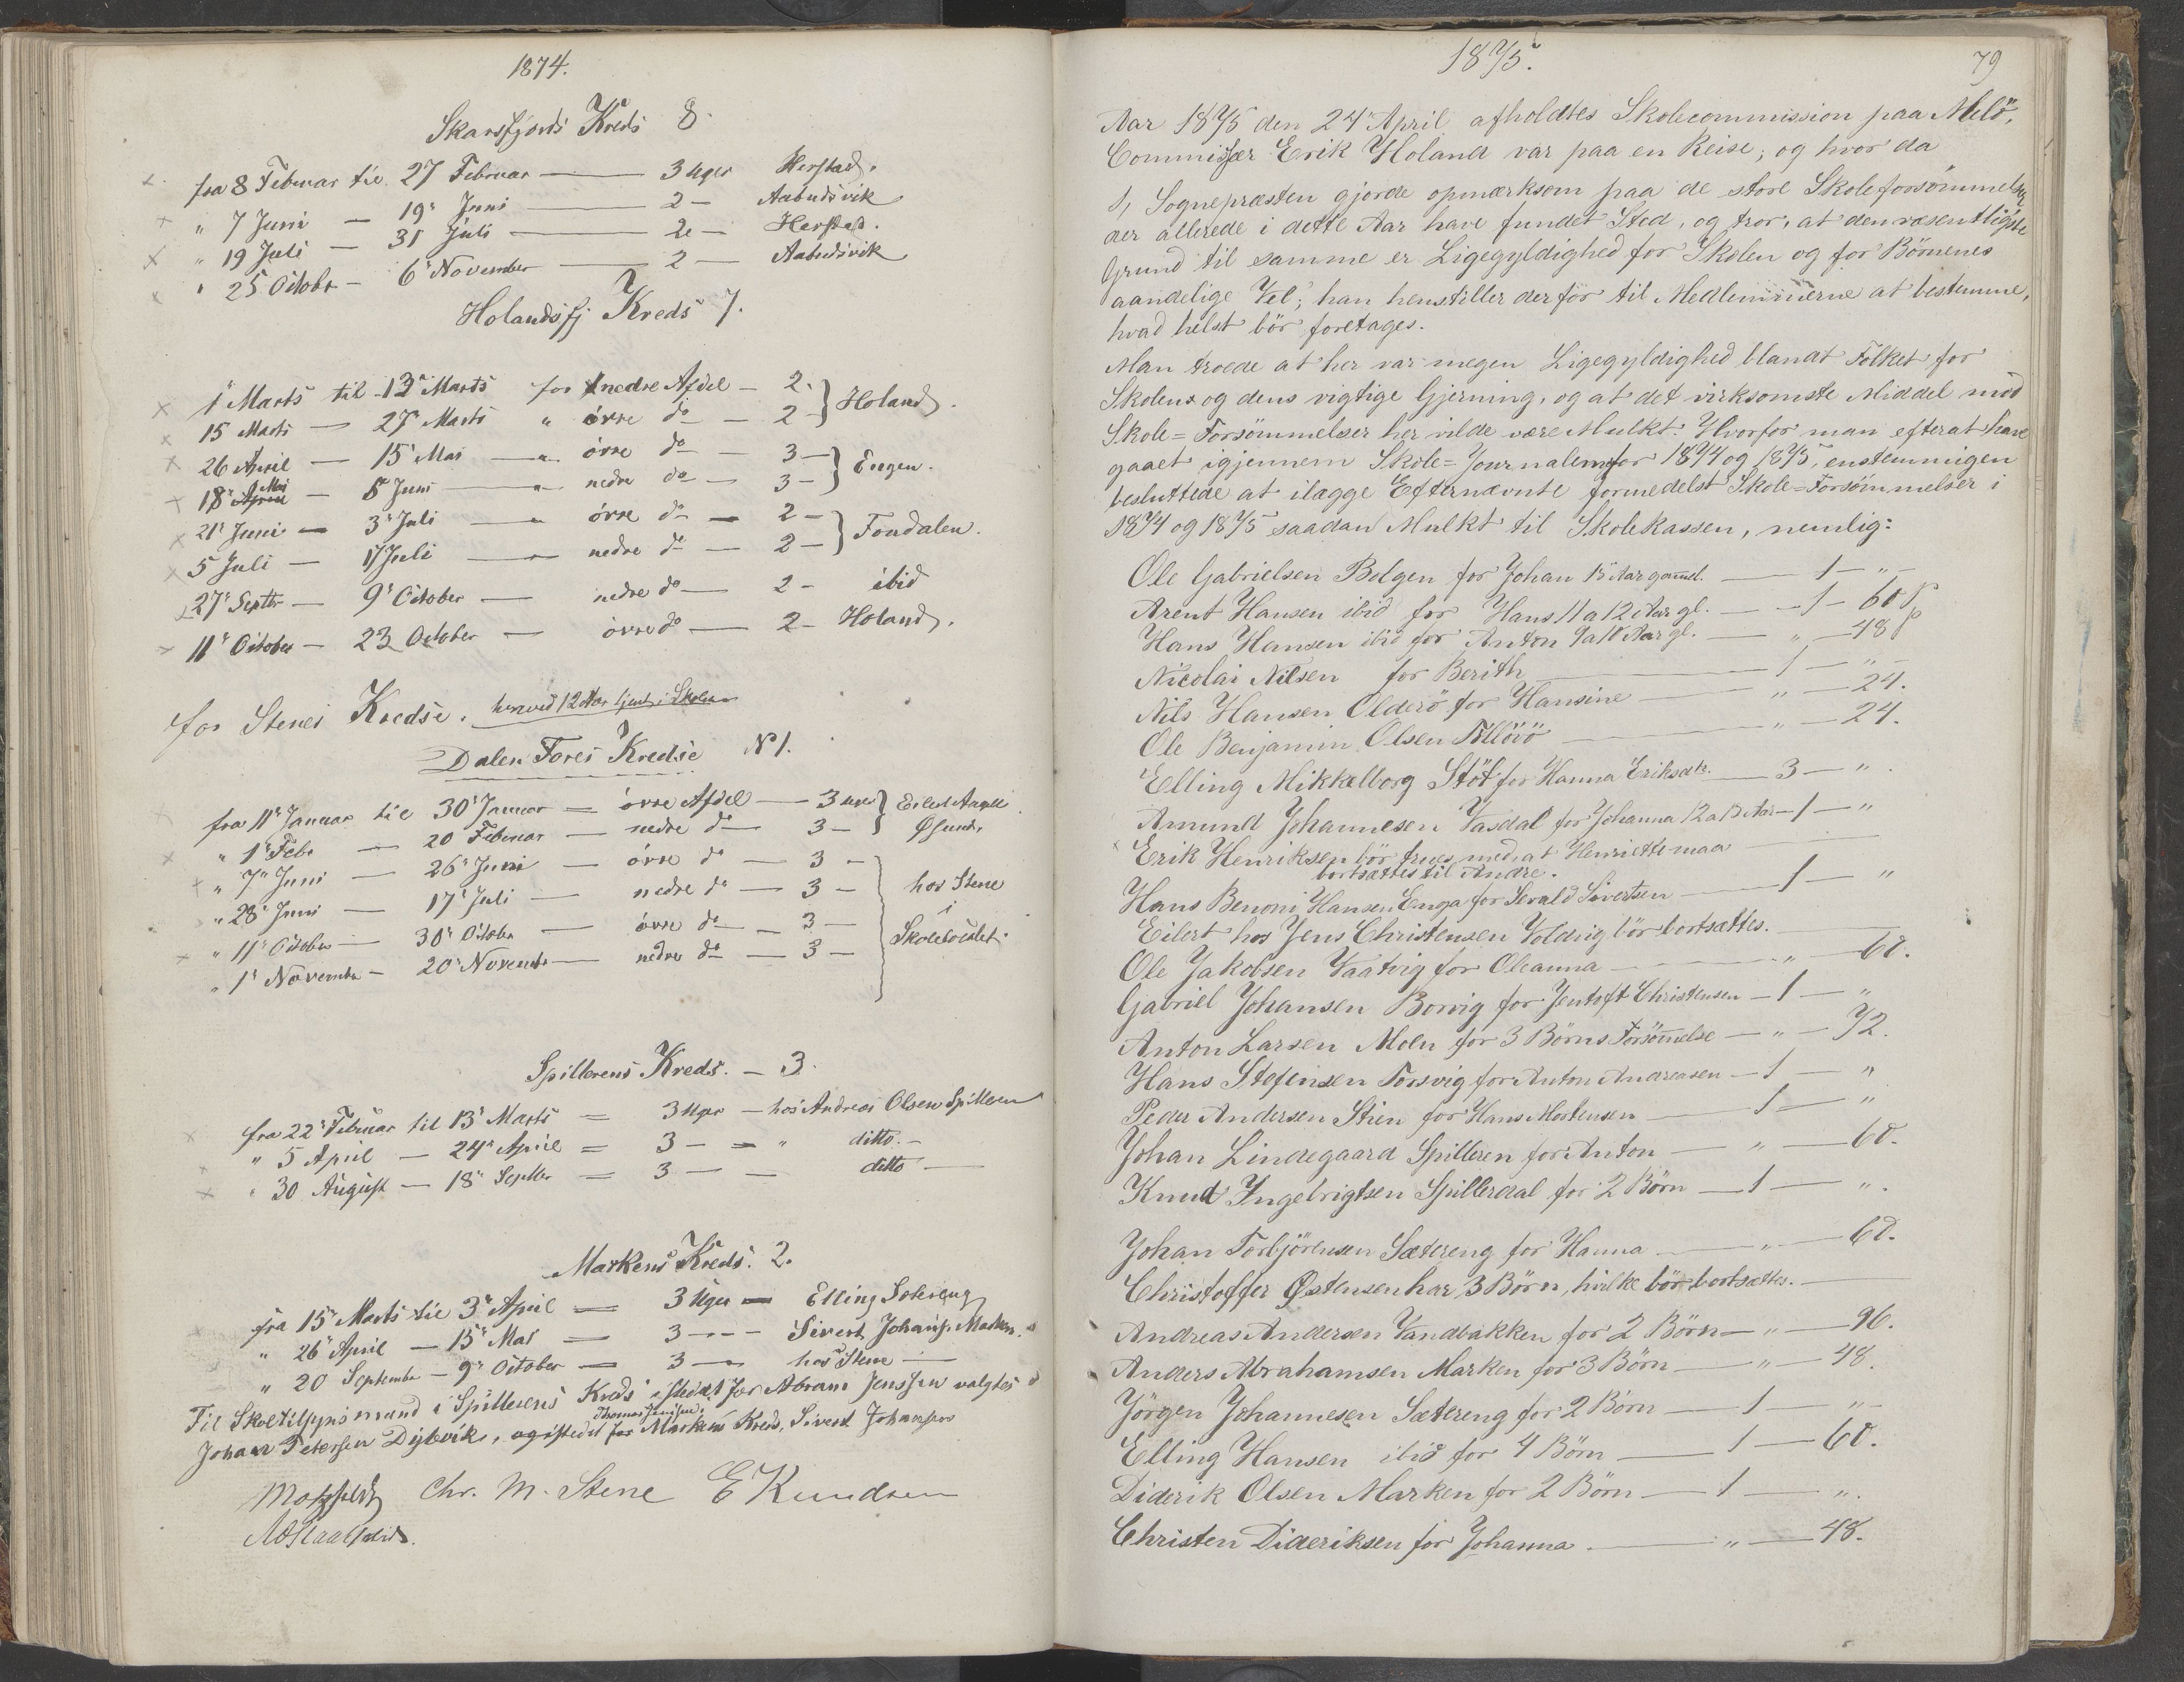 1874.
Skarsfjords Kreds 8.
fra 8 Februar til 27 Februar — 3 Uger Herstad.
" 7 Juni — 19 Juni — 2 — Aabudsvik
" 19 Juli — 31 Juli — 2 — Herstad.
" 25 Octobr — 6 November — 2 — Aabudsvik
Holandsfj Kreds 7.
1 Marts til 13 Marts for nedre Afdel — 2.
15 Marts — 27 Marts " övre do — 2 — Holand.
26 April — 15 Mai — " övre do — 3 —
18 Mai — 5 Juni — " nedre do — 3 — Engen.
21 Juni — 3 Juli — " övre do — 2 —
5 Juli — 17 Juli — nedre do — 2 — Fondalen.
27 Septbr — 9 October — nedre do — 2 — ibid
11 October — 23 October — övre do — 2 — Holand.
for Stenes Kredse. henved 12 Aar tjent i Skolen
Dalen Fores Kredse No 1.
fra 11 Januar til 30 Januar — övre Afdel — 3 Uger Eilert Angell
" 1 Febr — 20 Februar — nedre do — 3 — Øsund.
" 7 Juni — 26 Juni — övre do — 3 —
" 28 Juni — 17 Juli — nedre do — 3 — hos Stene
" 11 October — 30 October — övre do — 3 — i
" 1 Novembr — 20 Novembr — nedre do — 3 — Skolelocalet.
Spillerens Kreds. — 3.
fra 22 Februar til 13 Marts = 3 Uger — hos Andreas Olsen Spilleren
" 5 April — 24 April = 3 — = " ditto. —
" 30 August — 18 Septbr = 3 — — ditto —
Markens Kreds. 2.
fra 15 Marts til 3 April = 3 Uger — Elling Sætereng
" 26 April — 15 Mai = 3 — — Sivert Johans. Marken.
" 20 Septembr — 9 October — 3 — hos Stene —
Til Skoletilsynsmand i Spillerens Kreds istedet for Abram Jenssen valgtes
Johan Petersen Dybvik, og istedet for Thomas Jenssen, Markens Kreds, Sivert Johanssen
Motzfeldt Chr. M. Stene E Knudsen
1875.
79
Aar 1875 den 24 April afholdtes Skolecommission paa Melö,
Commissær Erik Holand var paa en Reise; og hvor da
1, Sognepræsten gjorde opmærksom paa de store Skoleforsömmelser
der allerede i dette Aar have fundet Sted, og tror, at den væsentligste
Grund til samme er Ligegyldighed for Skolen og for Börnenes
aandelige Vel; han henstiller derfor til Medlemmerne at bestemme,
hvad helst bör foretages.
Man troede at her var megen Ligegyldighed blandt Folket for
Skolens og dens vigtige Gjerning, og at det virksomste Middel mod
Skole=Forsömmelser her vilde være Mulkt. Hvorfor man efterat have
gaaet igjennem Skole=Journalen for 1874 og 1875, enstemmigen
besluttede at ilægge Efternævnte formedelst Skole=Forsömmelser i
1874 og 1875 saadan Mulkt til Skolekassen, nemlig:
Ole Gabrielsen Bolgen for Johan 15 Aar gammel. — 1 — " —
Arent Hansen ibid for Hans 11 a 12 Aar gl. — 1 — 60 ß
Hans Hansen ibid for Anton 9 a 10 Aar gl. — " — 48 ß
Nicolai Nilsen for Berith — 1 — " —
Nils Hansen Olderö for Hansine — " — 24.
Ole Benjamin Olsen — " — 24.
Elling Mikkelborg Stöt for Hanna Eriksdtr. — 3 — "
Amund Johannesen Vasdal for Johanna 12 a 13 Aar — 1 — "
Erik Henriksen bör trues med, at Henriette maa
bortsættes til Andre.
Hans Benoni Hansen Enga for Sevald Sivertsen — 1 — "
Eilert hos Jens Christensen Voldvig bör bortsættes.
Ole Jakobsen Vaatvig for Oleanna — " — 60.
Gabriel Johansen Borvig for Jentoft Christensen — 1 — "
Anton Larsen Moen for 3 Börns Forsömmelse — " — 72.
Hans Stefensen Torsvig for Anton Andreasen — 1 — "
Peder Andersen Stien for Hans Mortensen — 1 — "
Johan Lindegaard Spilleren for Anton — " — 60.
Knud Ingebrigtsen Spillerdal for 2 Börn — 1 — ".
Johan Torbjörensen Sætereng for Hanna — " — 60.
Christoffer Østensen har 3 Börn, hvilke bör bortsættes. —
Andreas Andersen Vandbakken for 2 Börn — " — 96.
Anders Abrahamsen Marken for 3 Börn — " — 48.
Jörgen Johannesen Sætereng for 2 Börn — 1 — " —
Elling Hansen ibid for 4 Börn — 1 — 60.
Diderik Olsen Marken for 2 Börn — 1 — ".
Christen Dideriksen for Johanna. — " — 48.